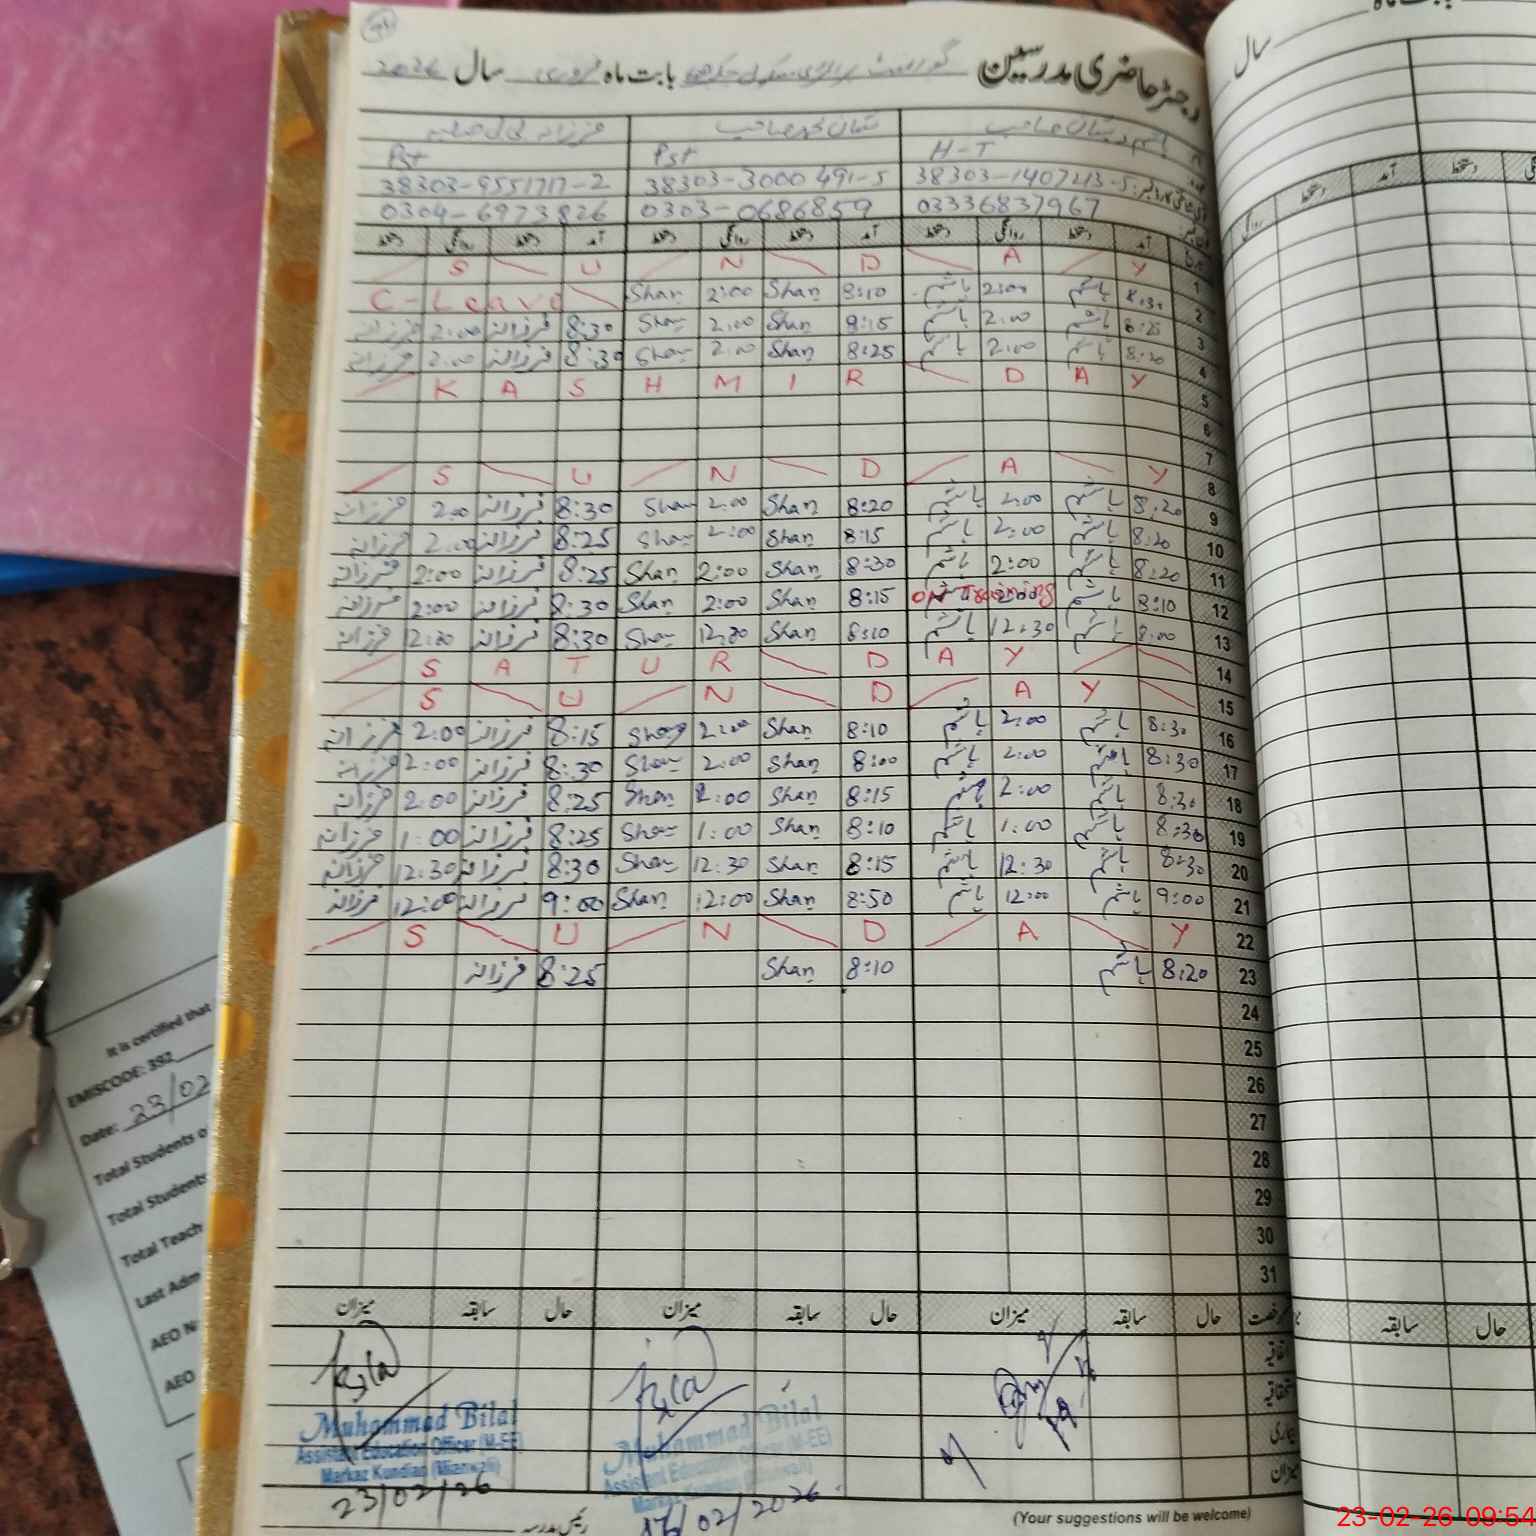 رجسٹر حاضری مدرسین گورنمنٹ پرائمری سکول بابت ماہ فروری سال 2026
سال بابت ماہ
شان محمد صاحب
H-T Pst Pst
38303-1407213-5 38303-3000491-5 38303-9551717-2
03336837967 0303-0686859 0304-6973826
آمد دستخط روانگی دستخط آمد دستخط روانگی دستخط آمد دستخط روانگی دستخط
S U N D A Y 1
C-Leave Shan 2:00 Shan 8:10 ہاشم 2:00 ہاشم 8:30 2
فرزانہ 2:00 فرزانہ 8:30 Shan 2:00 Shan 8:15 ہاشم 2:00 ہاشم 8:25 3
فرزانہ 2:00 فرزانہ 8:30 Shan 2:00 Shan 8:25 ہاشم 2:00 ہاشم 8:20 4
K A S H M I R D A Y 5
6
7
S U N D A Y 8
فرزانہ 2:00 فرزانہ 8:30 Shan 2:00 Shan 8:20 ہاشم 2:00 ہاشم 8:20 9
فرزانہ 2:00 فرزانہ 8:25 Shan 2:00 Shan 8:15 ہاشم 2:00 ہاشم 8:20 10
فرزانہ 2:00 فرزانہ 8:25 Shan 2:00 Shan 8:30 ہاشم 2:00 ہاشم 8:20 11
فرزانہ 2:00 فرزانہ 8:30 Shan 2:00 Shan 8:15 ہاشم on Training 2:00 ہاشم 8:10 12
فرزانہ 12:30 فرزانہ 8:30 Shan 12:30 Shan 8:10 ہاشم 12:30 ہاشم 8:00 13
S A T U R D A Y 14
S U N D A Y 15
فرزانہ 2:00 فرزانہ 8:15 Shan 2:00 Shan 8:10 ہاشم 2:00 ہاشم 8:30 16
فرزانہ 2:00 فرزانہ 8:30 Shan 2:00 Shan 8:00 ہاشم 2:00 ہاشم 8:30 17
فرزانہ 2:00 فرزانہ 8:25 Shan 2:00 Shan 8:15 ہاشم 2:00 ہاشم 8:30 18
فرزانہ 1:00 فرزانہ 8:25 Shan 1:00 Shan 8:10 ہاشم 1:00 ہاشم 8:30 19
فرزانہ 12:30 فرزانہ 8:30 Shan 12:30 Shan 8:15 ہاشم 12:30 ہاشم 8:30 20
فرزانہ 12:00 فرزانہ 9:00 Shan 12:00 Shan 8:50 ہاشم 12:00 ہاشم 9:00 21
S U N D A Y 22
فرزانہ 8:25 Shan 8:10 ہاشم 8:20 23
24
25
26
27
28
29
30
31
حال سابقہ میزان حال سابقہ میزان حال سابقہ میزان
حال سابقہ
اتفاقیہ
استحقاقیہ
بیماری
میزان
Muhammad Bilal
Assistant Education Officer (M-EE)
Markaz Kundian (Mianwali)
23/02/26
Muhammad Bilal
Assistant Education Officer (M-EE)
Markaz Kundian (Mianwali)
17/02/2026
رئیس مدرسہ
(Your suggestions will be welcome)
It is certified that
EMISCODE: 392
Date: 23/02
Total Students o
Total Students
Total Teach
Last Adm
AEO N
AEO
23-02-26 09:54